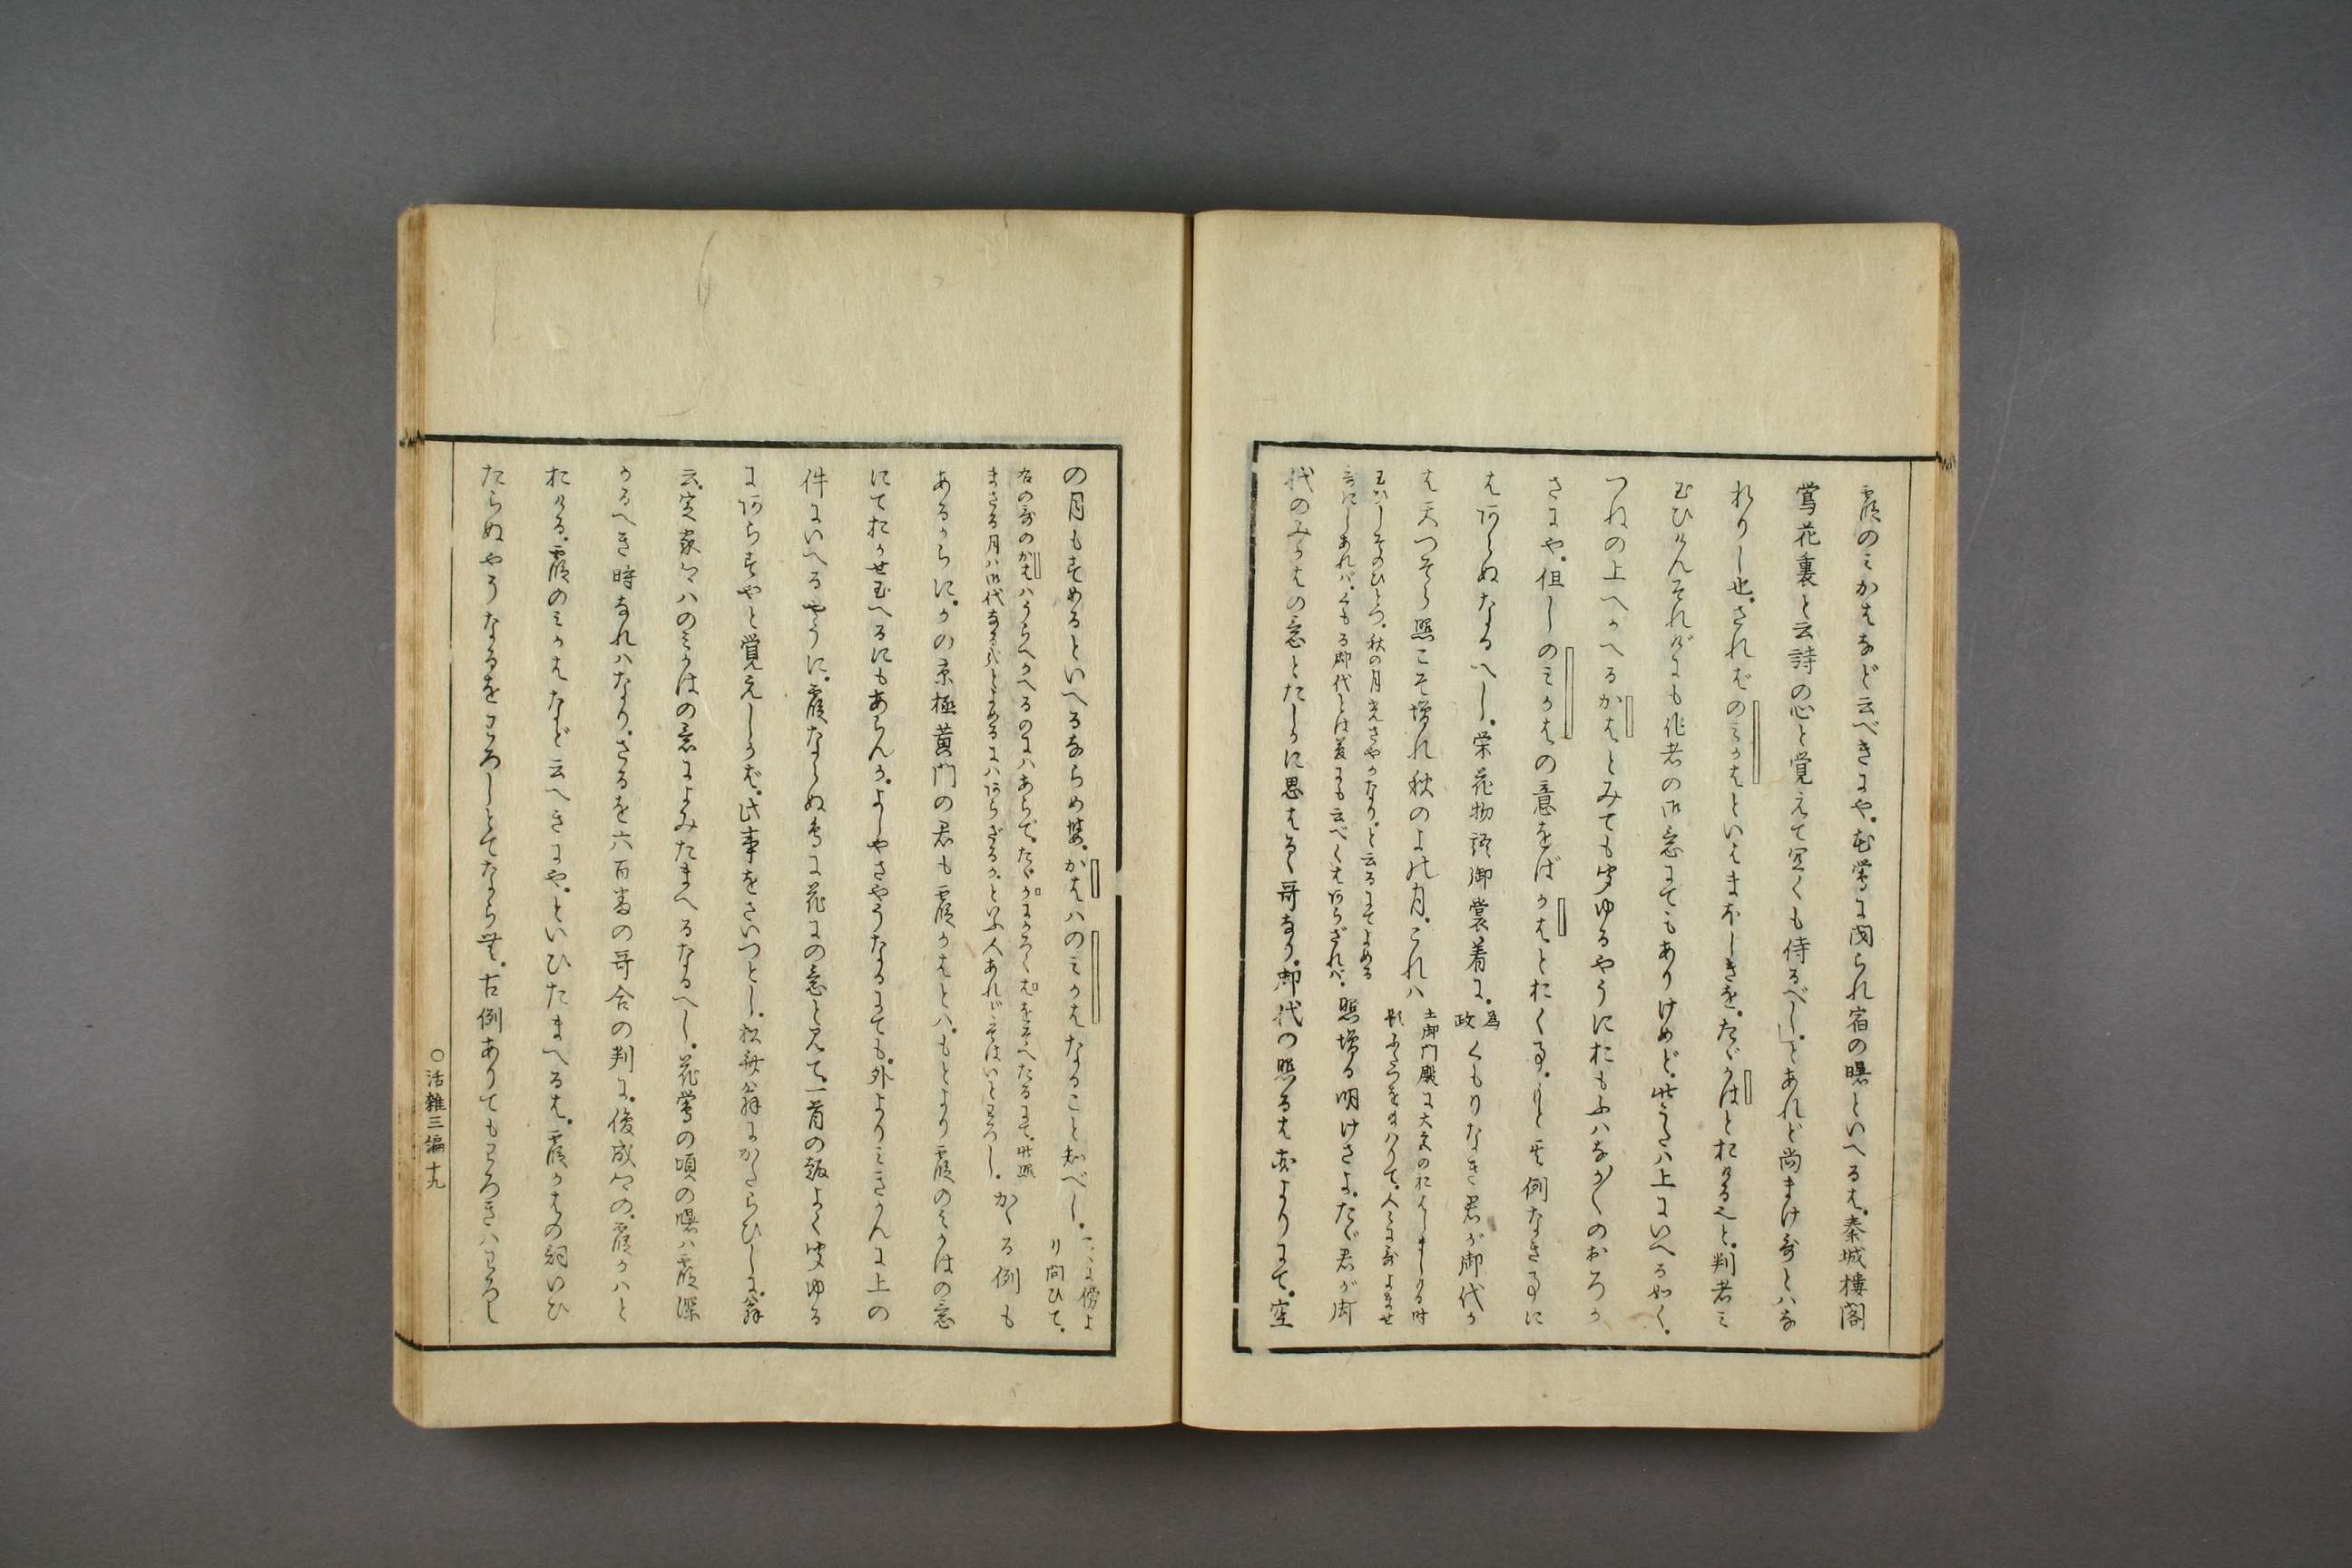 霞のミかはなど云べきにや。花鶯に閉られ宿の曙といへるは。秦城樓閣
鶯花裏と云詩の心と覚えて空くも侍るべし。」とあれど尚まけ哥とハな
れりし也。さればのミかはといはまホしきを。たゞかはとおける也と。判者ミ
玉ひけんそれがにも作者の御意にてもありけめど。此うたハ上にいへる如く。
つねの上へかへるかはとみても聞ゆるやうにおもふハなが〱のおろか
さにや。但しのミかはの意をばかはとおく事。もと其例なき事に
はあらぬなるへし。栄花物語御裳着に。為政くもりなき君が御代か
は天つそら照こそ増れ秋のよの月。これハ土御門殿に大宮のおはしましける時
の題
むかしそのひとつ。秋の月光さやかなり。と云るにてよめる
哥にしあれバ。くもる御代とは義にも云べくはあらざれバ。照増る明けさよ。たゞ君が御
代のみかはの意とたしかに思はるゝ哥なり。御代の照るは本よりにて。空
の月もすめるといへるならめ。かはハのミかはなること知べし。こゝに傍より問ひて。
右の哥のかはハうらへかへるのにハあらで。たゞかにかろくはをそへたるにて。此照
まさる月ハ御代なる哉とよめるにハあらざるか。といふ人あれどそはいとわろし。かゝる例も
あるからに。かの京極黄門の君も霞かはとハ。もとより霞のミかはの意
にておかせ玉へるにもあらんか。よしやさやうなるにても。外よりミきかんに上の
件にいへるやうに。霞ならぬ鳥に花にの意と見て。一首の趣よく聞ゆる
にあらずやと覚えしかば。此事をさいつとし。松舎翁にかたらひしに。翁
云。定家卿ハのミかはの意によみたまへるなるへし。花鶯の頃の曙ハ霞深
かるへき時なれハなり。さるを六百番の哥合の判に。俊成卿の。霞かハと
おける。霞のミかはなど云へきにや。といひたまへるは。霞かはの詞いひ
たらぬやうなるをわろしとてならむ。古例ありてもわろきハわろし
○活雑三編十九